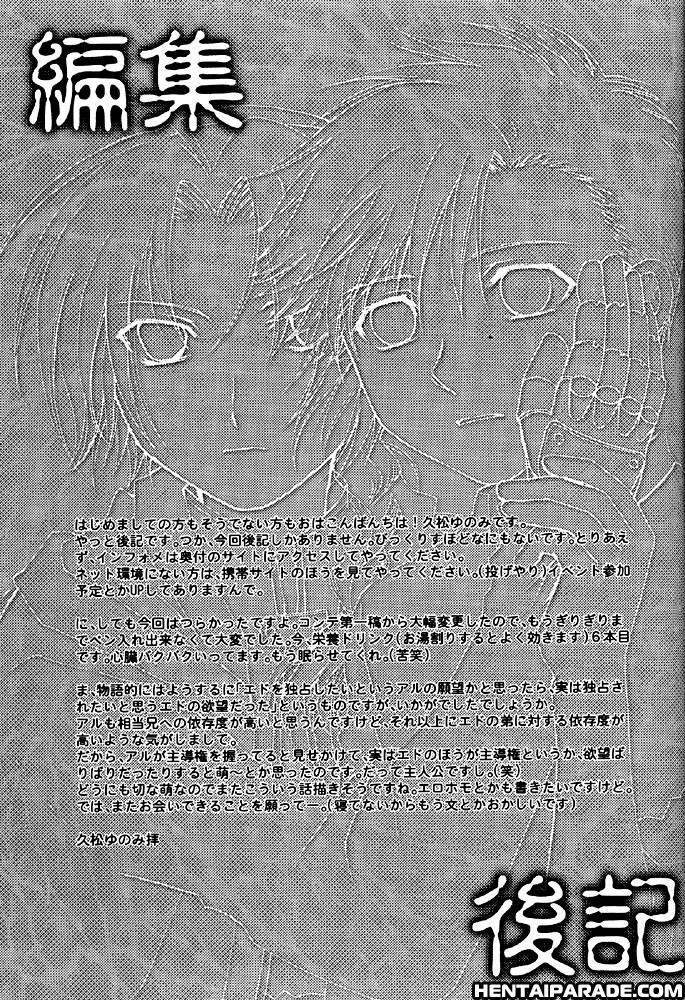 編集
はじめましての方もそうでない方もおはこんばんちは！久松ゆのみです。
やっと後記です。つか、今回後記しかありません。びっくりすほどなにもないです。とりあえ
ず、インフォメは奥付のサイトにアクセスしてやってください。
ネット環境にない方は、携帯サイトのほうを見てやってください。(投げやり)イベント参加
予定とかUPしてありますんで。
に、しても今回はつらかったですよ。コンテ第一稿から大幅変更したので、もうぎりぎりま
でペン入れ出来なくて大変でした。今、栄養ドリンク(お湯割りするとよく効きます)６本目
です。心臓バクバクいってます。もう眠らせてくれ。(苦笑)
ま、物語的にはようするに「エドを独占したいというアルの願望かと思ったら、実は独占さ
れたいと思うエドの欲望だった」というものですが、いかがでしたでしょうか。
アルも相当兄への依存度が高いと思うんですけど、それ以上にエドの弟に対する依存度が
高いような気がしまして。
だから、アルが主導権を握ってると見せかけて、実はエドのほうが主導権というか、欲望ば
りばりだったりすると萌～とか思ったのです。だって主人公ですし。(笑)
どうにも切な萌なのでまたこういう話描きそうですね。エロホモとかも書きたいですけど。
では、またお会いできることを願ってー。(寝てないからもう文とかおかしいです)
久松ゆのみ拝
後記
HENTAIPARADE.COM